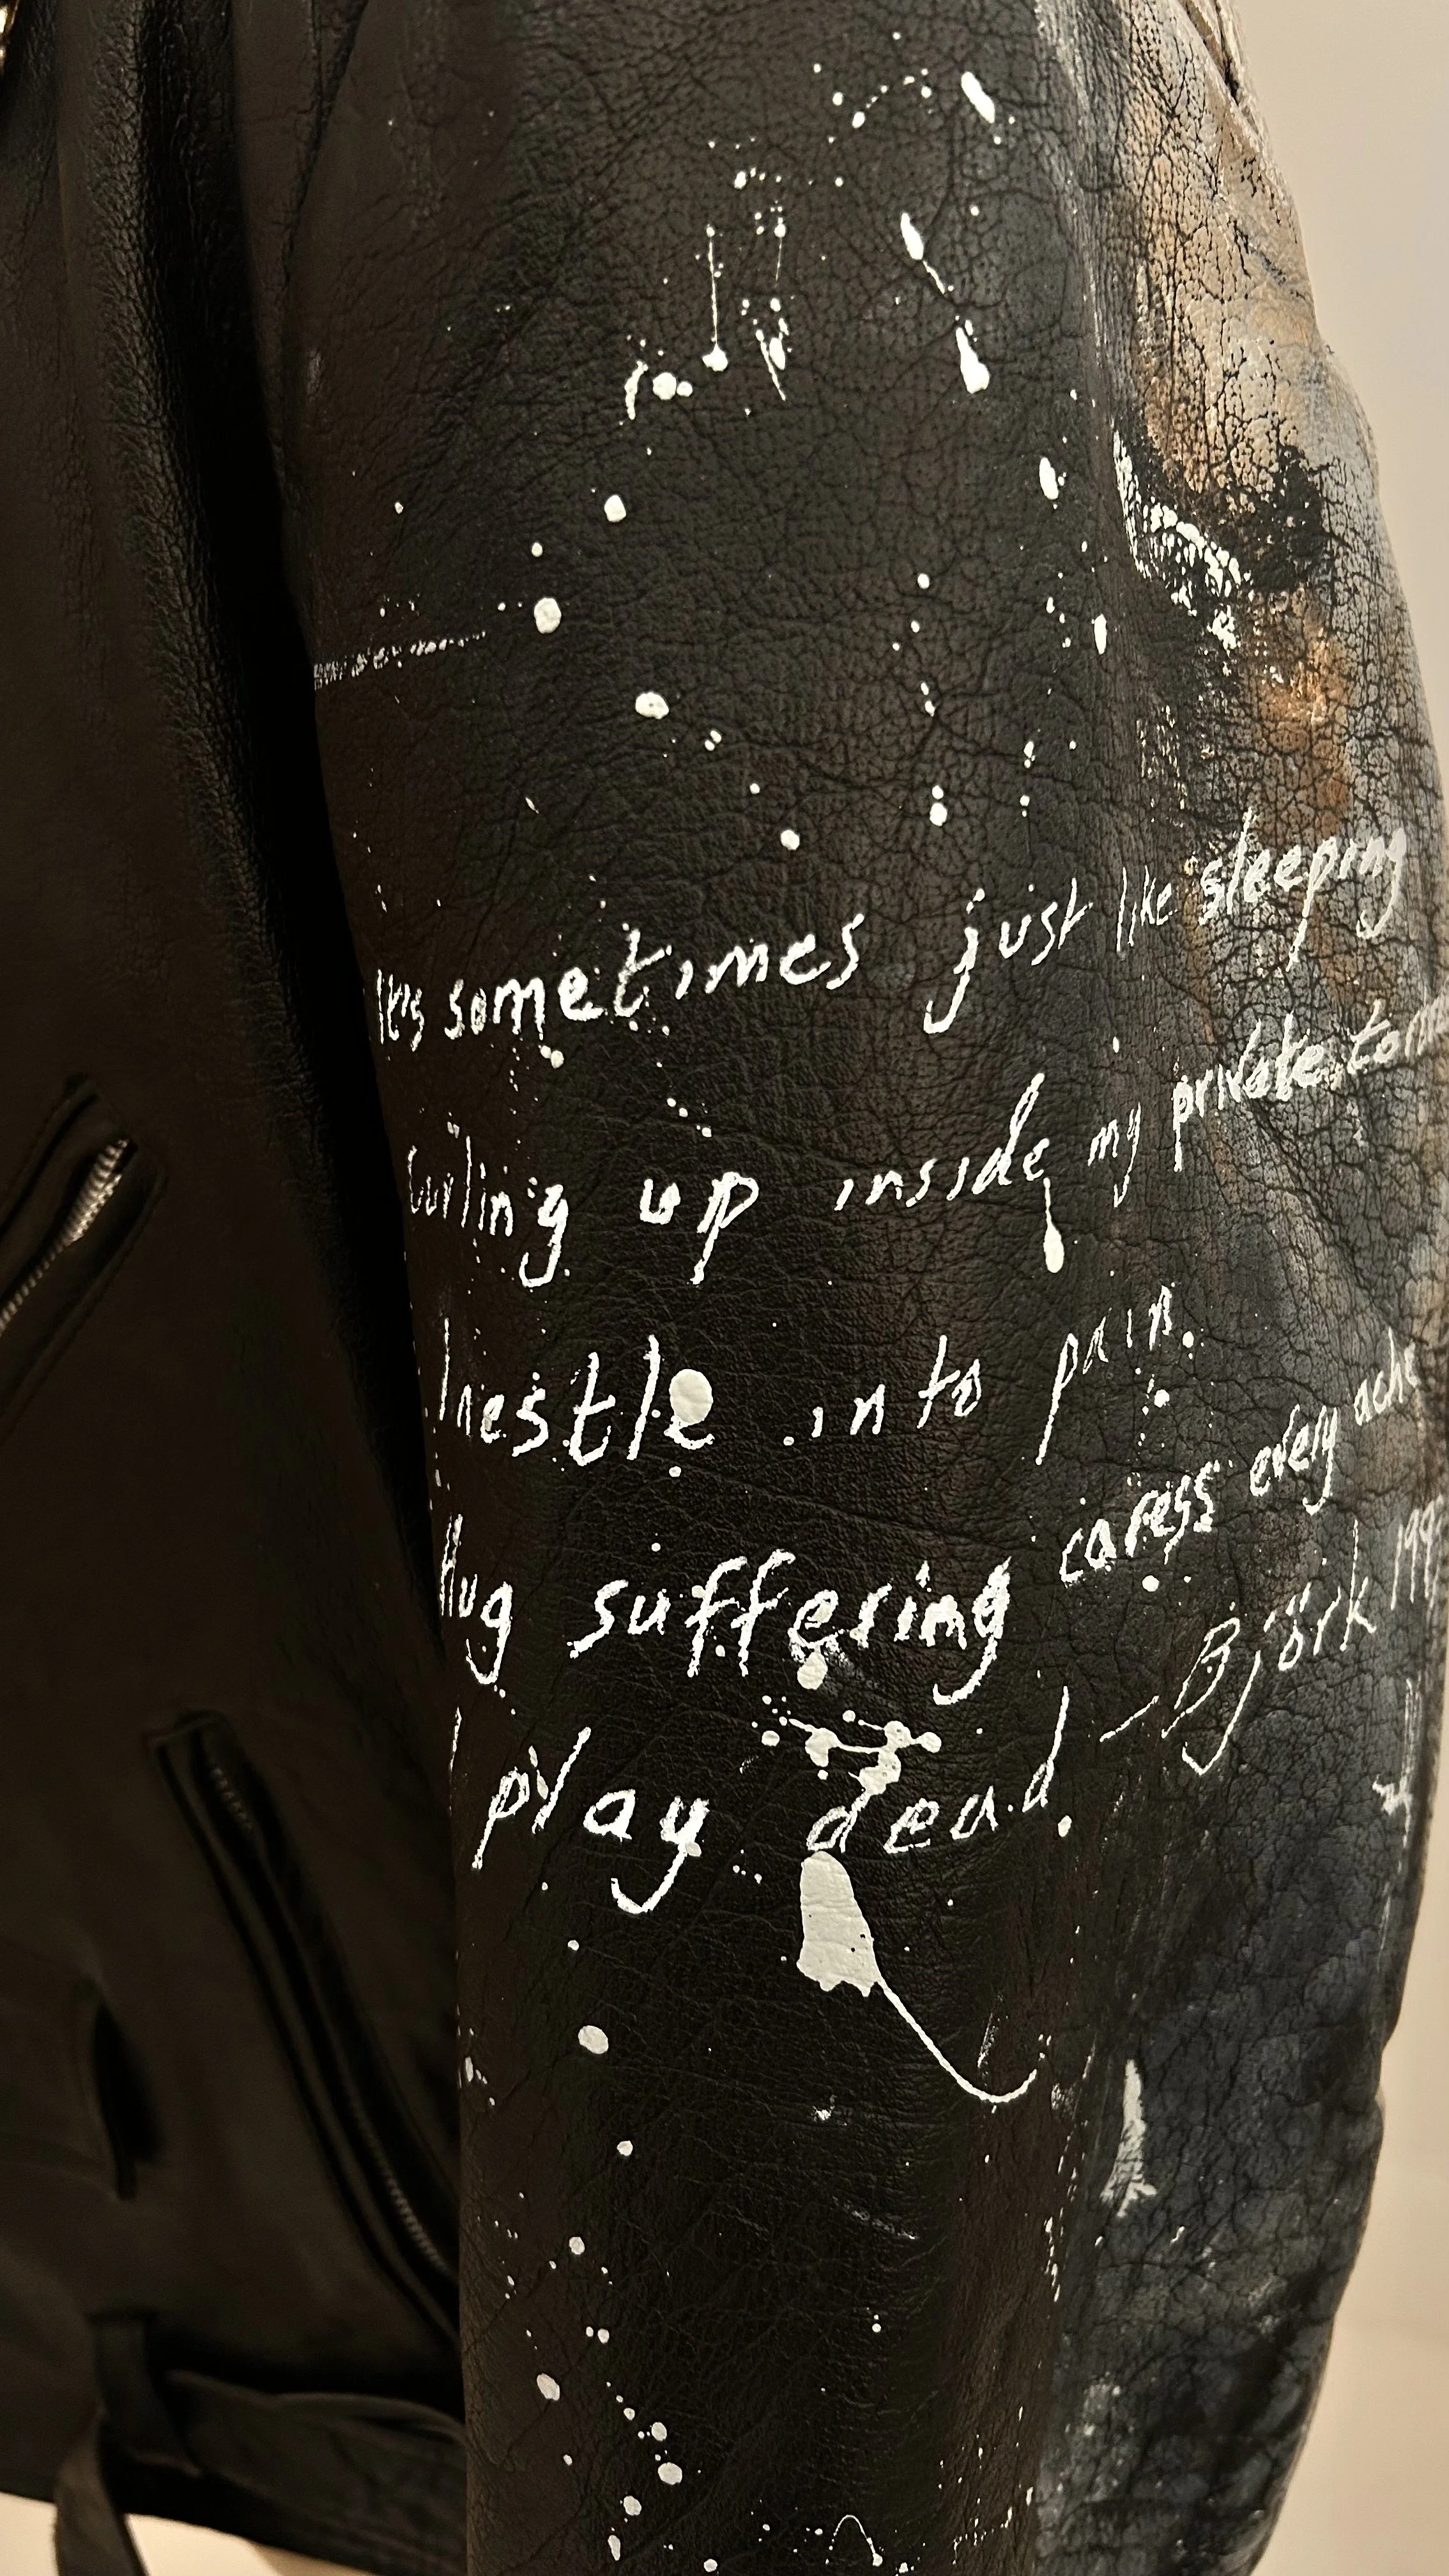 It's sometimes just like sleeping
Curling up inside my private
I nestle into pain.
Hug suffering caress every ache
I play dead — Björk 199